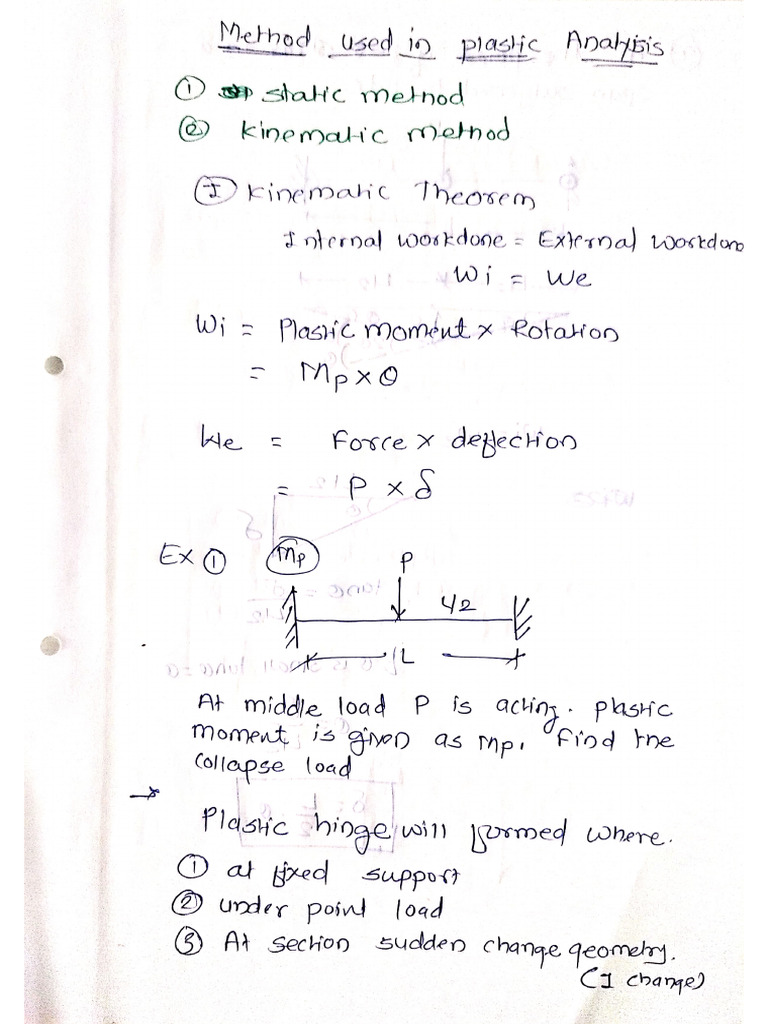 Method used in plastic Analysis
① static method
② kinematic method
Ⓘ kinematic Theorem
Internal workdone = External workdone
Wi = We
Wi = Plastic moment x Rotation
= Mp x θ
We = Force x deflection
= P x δ
Ex ① Mp P
L/2
L
At middle load P is acting. plastic
moment is given as Mp. find the
collapse load
→ Plastic hinge will formed where.
① at fixed support
② under point load
③ At section sudden change geometry.
(I change)